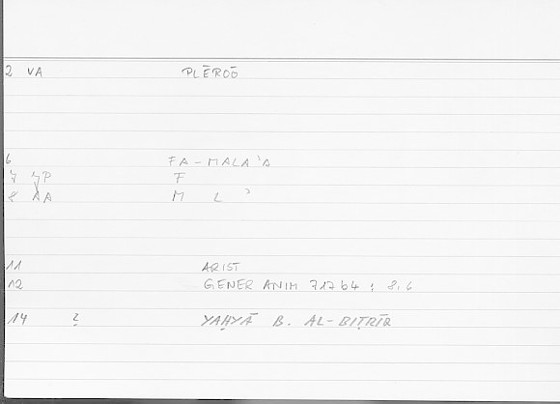 2 VA PLĒROŌ
6 FA-MALA'A
7 YP F
8 AA M L ʾ
11 ARIST
12 GENER ANIM 717b4 ; 8.6
14 ? YAḤYĀ B. AL-BIṬRĪQ